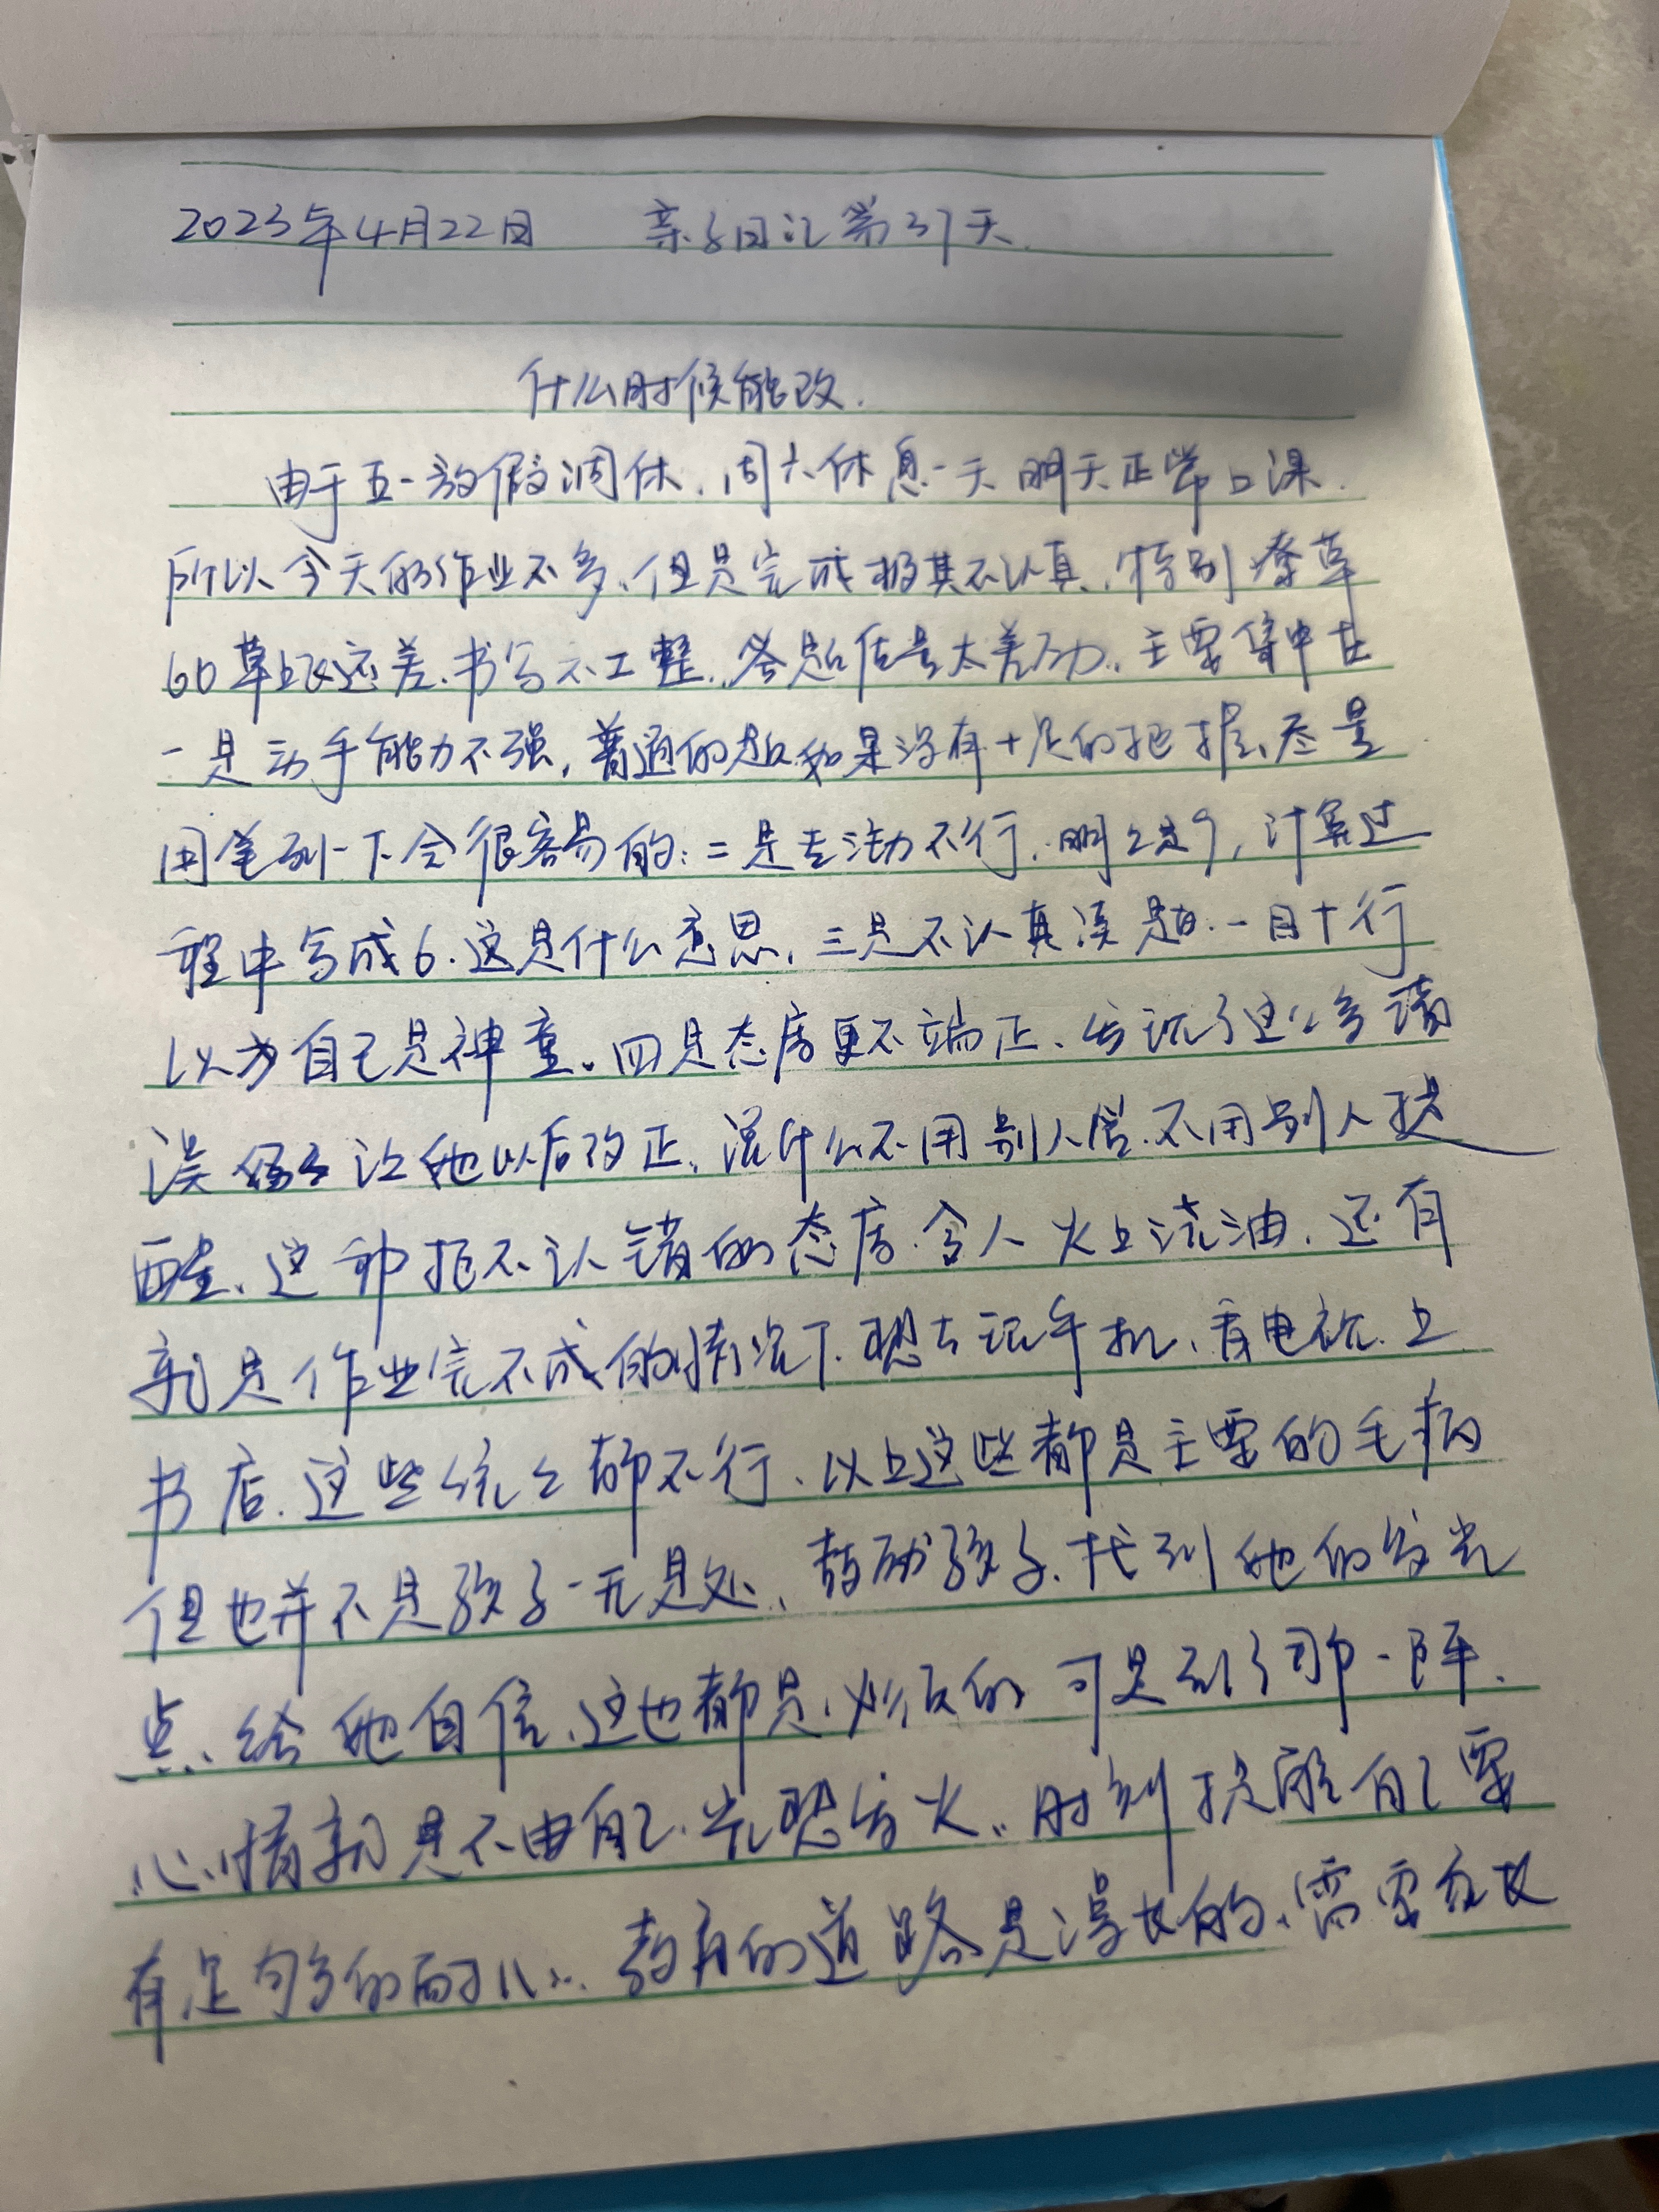 2023年4月22日 亲子日记第37天
什么时候能改.
由于五一放假调休,周六休息一天明天正常上课.
所以今天的作业不多、但是完成极其不认真,特别潦草
比草上飞还差.书写不工整.答题质量太差劲.主要集中在
一是动手能力不强,普通的题如果没有十足的把握、尽量
用笔列一下会很容易的:二是专注力不行.明明是9,计算过
程中写成6.这是什么意思,三是不认真读题.一目十行
以为自己是神童。四是态度更不端正、出现了这么多错
误 让她以后改正、说什么不用别人管.不用别人提
醒、这种拒不认错的态度.令人火上浇油.还有
就是作业完不成的情况下.想去玩手机、看电视.上
书店.这些统统都不行、以上这些都是主要的毛病
但也并不是孩子一无是处、鼓励孩子.找到她的发光
点、给她自信、这也都是必须的 可是到了那一阵.
心情就是不由自己.光想发火.时刻提醒自己要
有足够多的耐心.教育的道路是漫长的、需要父母